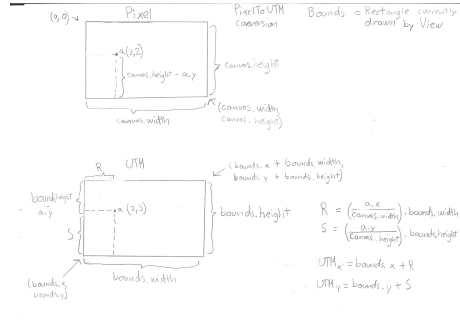 (0,0)→
Pixel
PixelToUTM
Conversion
Bounds = Rectangle currently
drawn by View
a(2,2)
canvas.height - a.y
canvas.height
canvas.width
(canvas.width
canvas.height)
R
UTM
(bounds.x + bounds.width,
bounds.y + bounds.height)
bounds.height
a.y
a (2,3)
S
bounds.height
bounds.width
(bounds.x,
bounds.y)
R = (a.x / canvas.width) · bounds.width
S = (a.y / canvas.height) · bounds.height
UTMx = bounds.x + R
UTMy = bounds.y + S